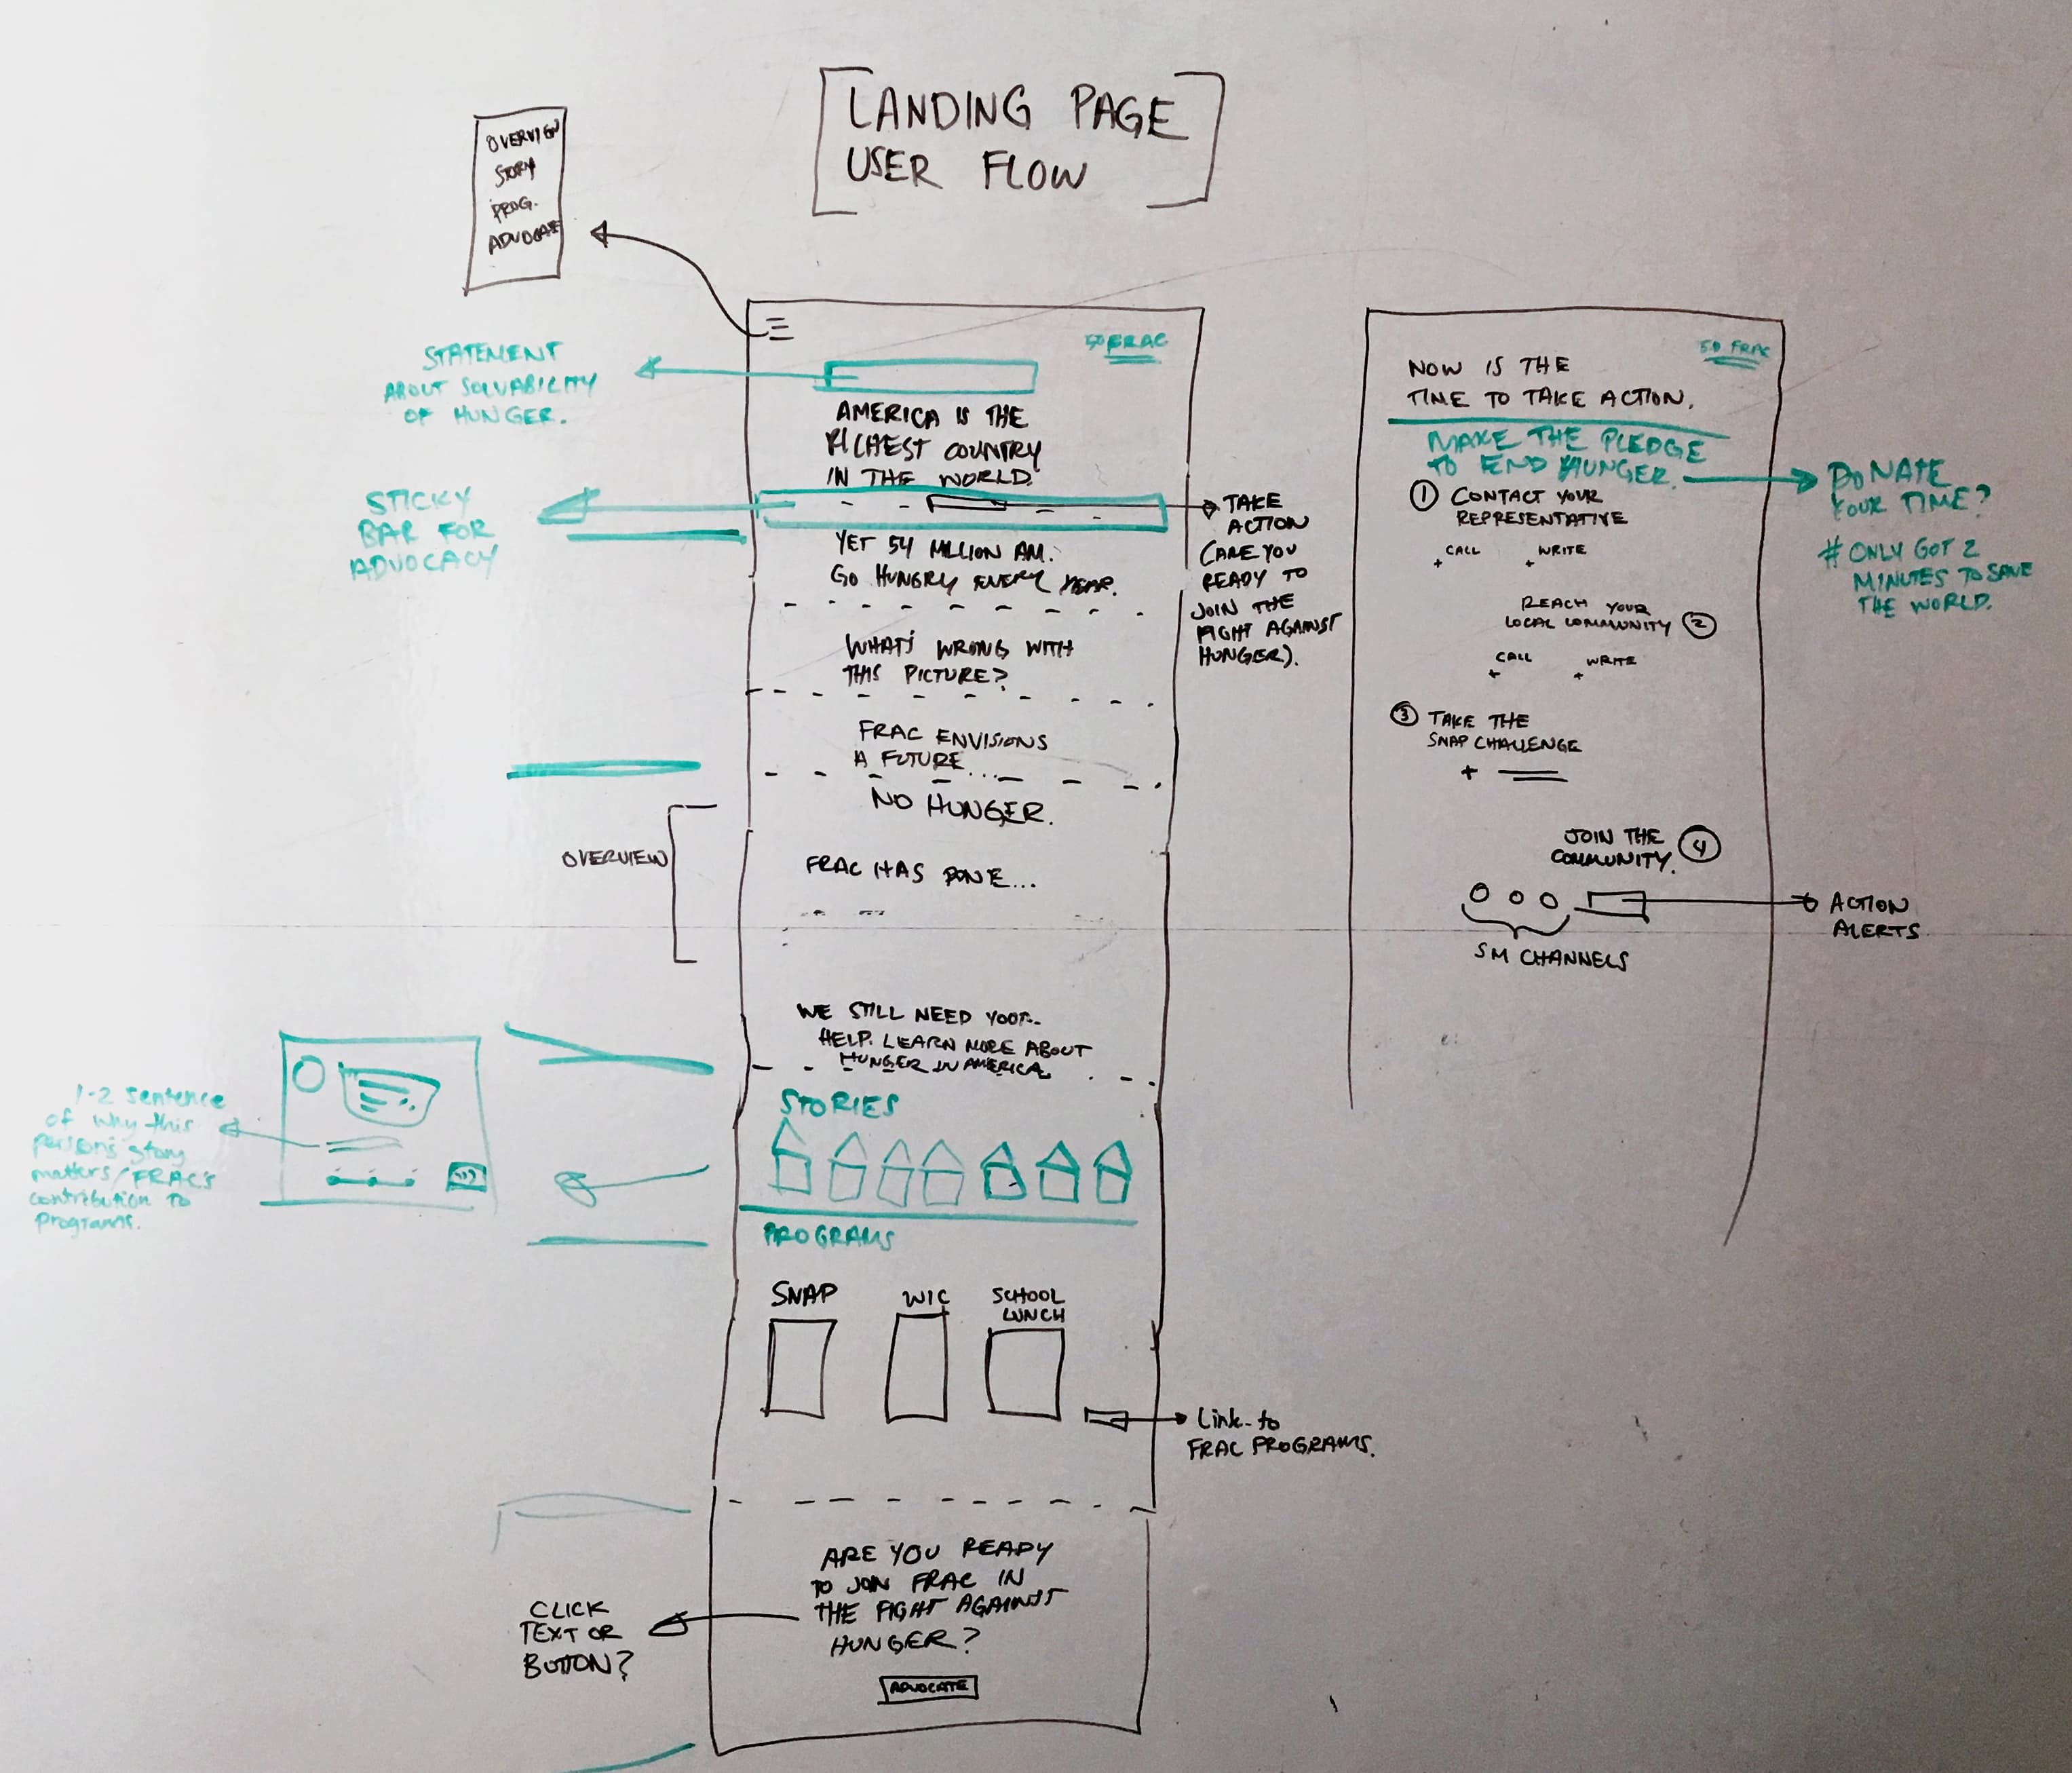 [LANDING PAGE
USER FLOW]
OVERVIEW
STORY
PROG.
ADVOCATE
STATEMENT
ABOUT SOLVABILITY
OF HUNGER.
50 FRAC
AMERICA IS THE
RICHEST COUNTRY
IN THE WORLD.
STICKY
BAR FOR
ADVOCACY
TAKE
ACTION
(ARE YOU
READY TO
JOIN THE
FIGHT AGAINST
HUNGER).
YET 54 MILLION AM.
GO HUNGRY EVERY YEAR.
WHAT'S WRONG WITH
THIS PICTURE?
FRAC ENVISIONS
A FUTURE...
NO HUNGER.
OVERVIEW
FRAC HAS DONE...
WE STILL NEED YOUR
HELP. LEARN MORE ABOUT
HUNGER IN AMERICA
STORIES
1-2 sentence
of why this
person's story
matters/FRAC's
contribution to
programs.
PROGRAMS
SNAP
WIC
SCHOOL
LUNCH
Link to
FRAC PROGRAMS.
ARE YOU READY
TO JOIN FRAC IN
THE FIGHT AGAINST
HUNGER?
CLICK
TEXT OR
BUTTON?
ADVOCATE
50 FRAC
NOW IS THE
TIME TO TAKE ACTION.
MAKE THE PLEDGE
TO END HUNGER.
DONATE
YOUR TIME?
# ONLY GOT 2
MINUTES TO SAVE
THE WORLD.
① CONTACT YOUR
REPRESENTATIVE
CALL WRITE
+ +
REACH YOUR
LOCAL COMMUNITY ②
CALL WRITE
+ +
③ TAKE THE
SNAP CHALLENGE
+
JOIN THE
COMMUNITY. ④
SM CHANNELS
ACTION
ALERTS